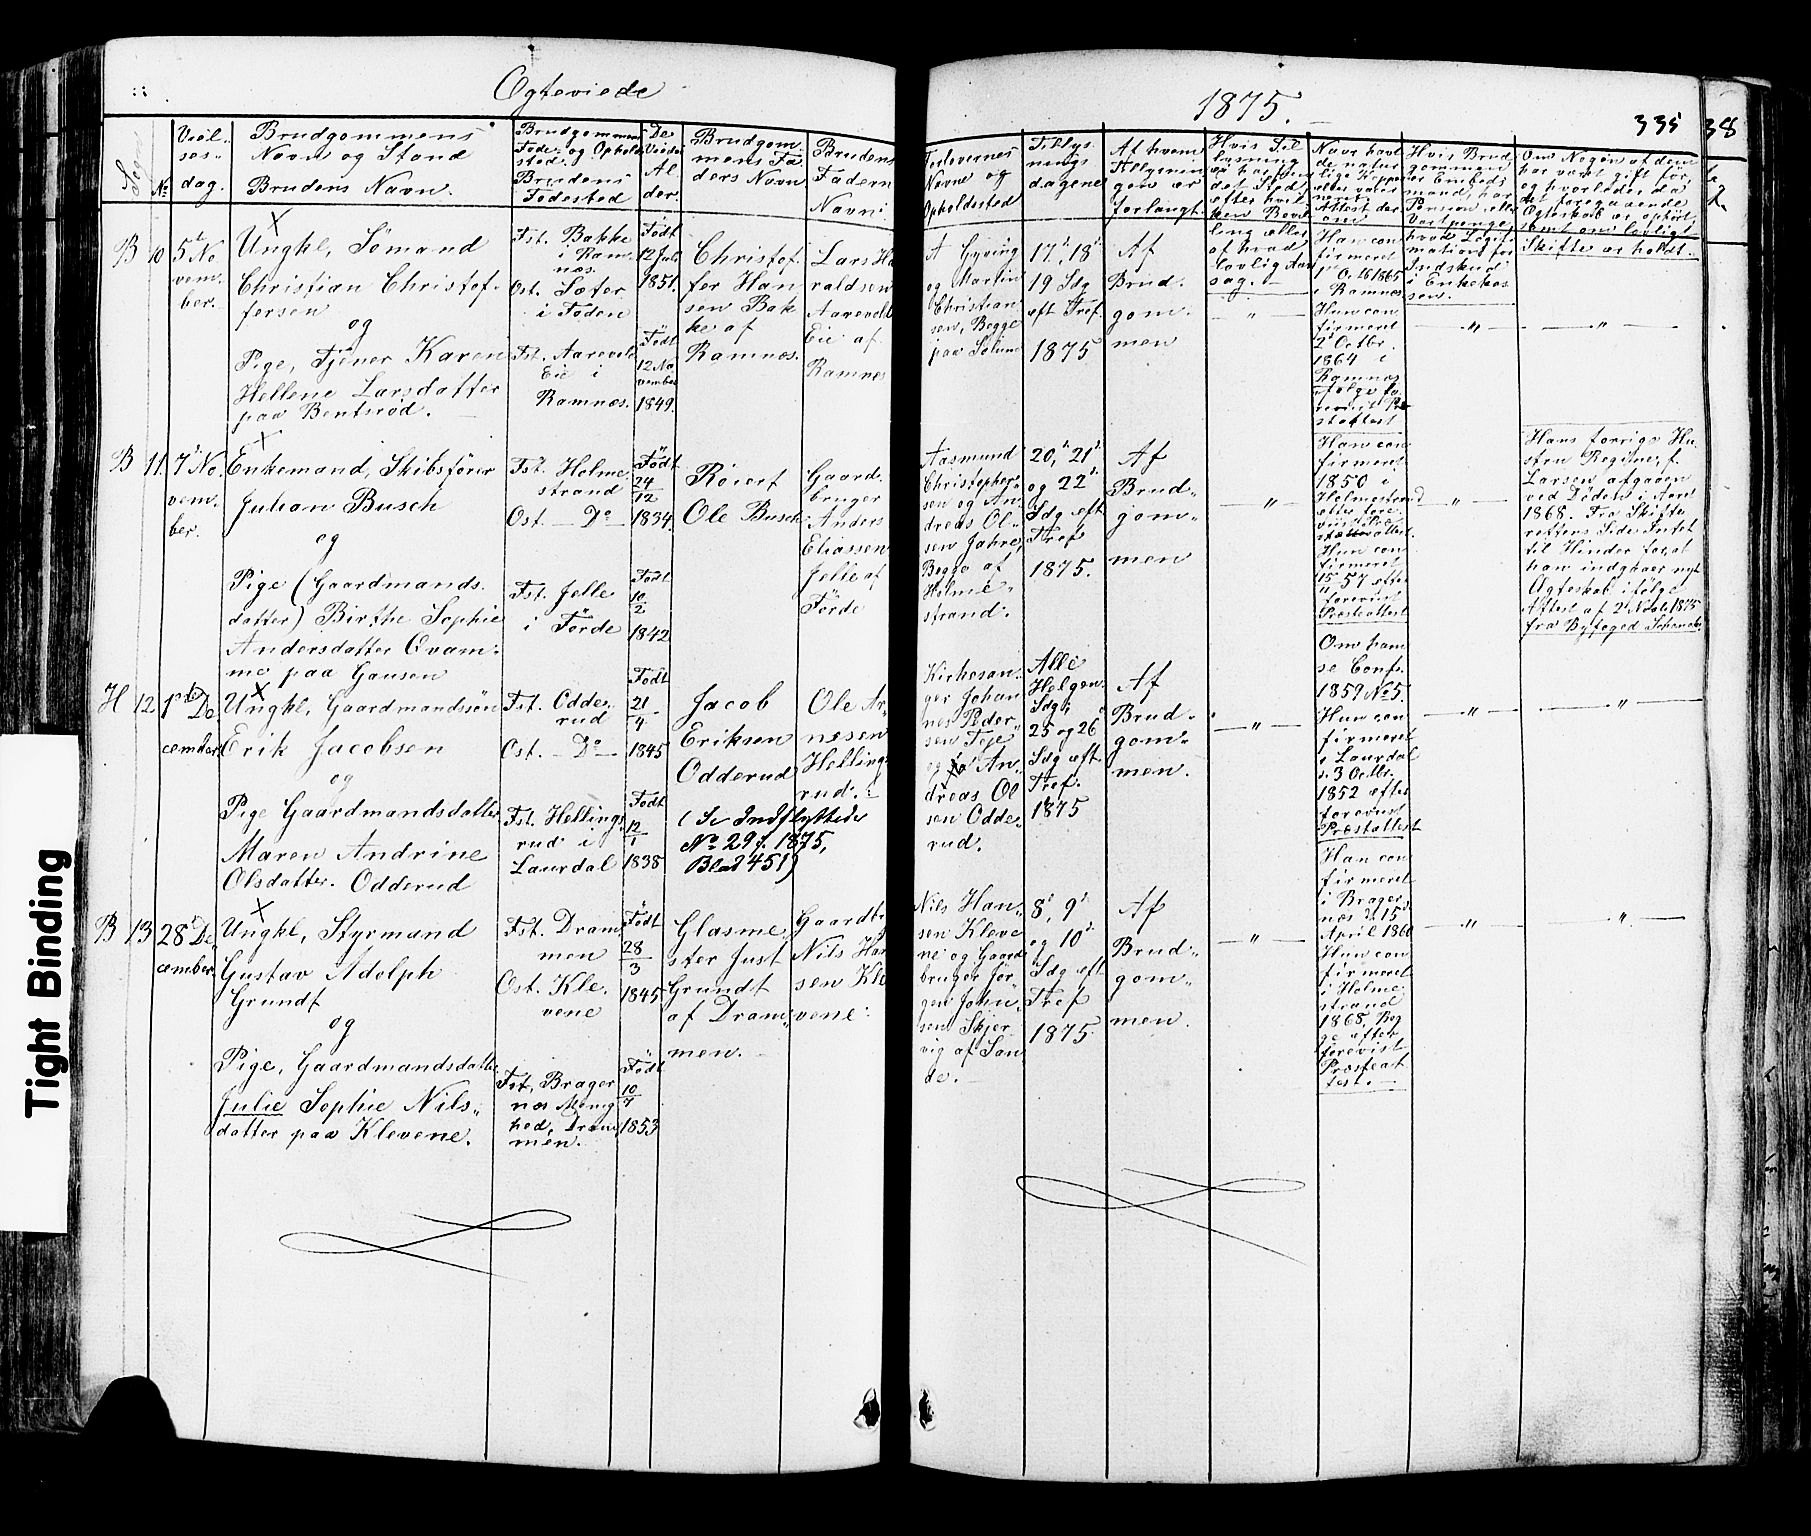 Ogteviede
1875.
335
38
Sogn
No
Viel-
ses-
dag.
Brudgommens
Navn og Stand
Brudens Navn.
Brudgommens
Føde- og Opholds
sted.
Brudens
Fødested
De
Viedes
Al
der.
Brudgom-
mens Fa
ders Navn
Brudens
Faders
Navn
Forlovernes
Navne og
Opholdssted
Tillys-
nings
dagene
Af hvem
Tillysnin
gen er
forlangt.
B 10
5t No
vem-
ber.
Ungkl, Sømand
Christian Christof-
fersen
og
Pige, Tjener Karen
Hellene Larsdatter
paa Bentsrød.
Fst. Bakke
i Ram-
nes.
Ost. Sæter
i Foden
Fst. Aarevold
Eie i
Ramnæs.
Født
12 Juli
1851.
Født
12 No
vember
1849.
Christof-
fer Han
sen Bak
ke af
Ramnæs.
Lars Ha
raldsen
Aarevold
Eie af
Ramnes
A Gyving
og Martin
Christian
sen, Begge
paa Solum
17', 18'
19 Sdg
eft Tref
1875
Af
Brud-
gom-
men
Han con
firmeret
1' Oct 1865
i Ramnes
Hun con
firmeret
2' Octbr.
1864 i
Ramnæs
ifølge fo
revist Præ
stattest
Skifte er holdt.
B 11
7' No
vem-
ber.
Enkemand, Skibsfører
Julian Busch
og
Pige (Gaardmands-
datter) Birthe Sophie
Andersdatter Evam-
me paa Gausen
Fst Holme
strand
Ost. — Do —
Fst. Jelle
i Førde
Født
24
12
1834.
Født
10
2
1842
Røiert
Ole Busch
Gaard-
bruger
Anders
Eliassen
Jelie af
Førde
Aasmund
Christopher-
sen og An
dreas Ol-
sen Jahre,
Begge af
Holme-
strand.
20', 21'
og 22'
Sdg eft
Tref
1875.
Af
Brud-
gom-
men
Han con
firmeret
1850 i
Holmestrand
efter fore
vist Præ
steattest.
Hun con
firmeret
1857 efter
forevist
Præsteattest
Hans forrige Hu-
stru Regine, f.
Larsen afgaaen
ved Døden i Aaret
1868. Fra Skifte
rettens Side Intet
til Hinder for at
han indgaaer nyt
Ægteskab ifølge
Attest af 2' Novbr 1875
fra Byfoged
H 12
1ste De
cember
Ungkl, Gaardmandssøn
Erik Jacobsen
og
Pige Gaardmandsdatter
Maren Andrine
Olsdatter. Odderud
Fst. Odde-
rud
Ost. — Do —
Fst. Hellings
rud i
Laurdal
Født
21
4
1845
Født
12
1
1838
Jacob
Eriksen
Odderud
(Se Indflyttede
No 29 f. 1875,
Blad 451)
Ole Ar-
nesen
Hellings-
rud.
Kirkesan-
ger Johan
nes Peder
sen Teje
og An-
dreas Ol
sen Odde-
rud.
Alle
Helgen
Sdg,
25 og 26'
Sdg eft.
Tref.
1875
Af
Brud-
gom-
men.
Om ham
se Conf.
1859 No 5.
Hun con
firmeret
i Laurdal
d. 3 Octbr.
1852 efter
forevist
Præstattest
B 13
28' De
cember
Ungkl, Styrmand
Gustav Adolph
Grundt
og
Pige, Gaardmandsdatter
Julie Sophie Nils-
datter paa Klevene.
Fst. Dram
men
Ost. Kle-
vene
Fst, Brager
næs Menig
hed, Dram
men.
Født
28
3
1845
Født
10
7
1853
Glasme
ster Just
Grundt
af Dram-
men.
Gaardbr
Nils Han
sen Kle
vene.
Nils Han-
sen Kleve
ne og Gaard
bruger Jør-
gen John-
sen Skjer
vig af San
de.
8', 9'
og 10'
Sdg eft
Tref
1875.
Af
Brud-
gom-
men.
Han con
firmeret
i Brager-
næs d. 15
April 1860
Hun con
firmeret
i Holme-
strand
1868, Beg
ge efter
forevist
Præsteat
test.
Tight Binding